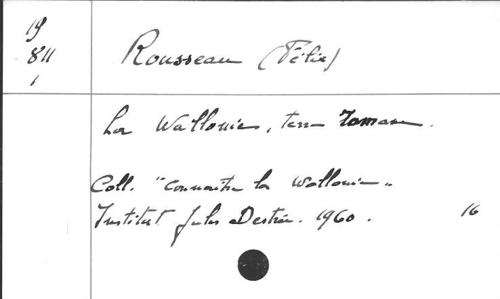 19
811
1
Rousseau (Félix)
La Wallonie, terre romane.
Coll. "Connaitre la Wallonie"
Institut Jules Destrée. 1960. 16